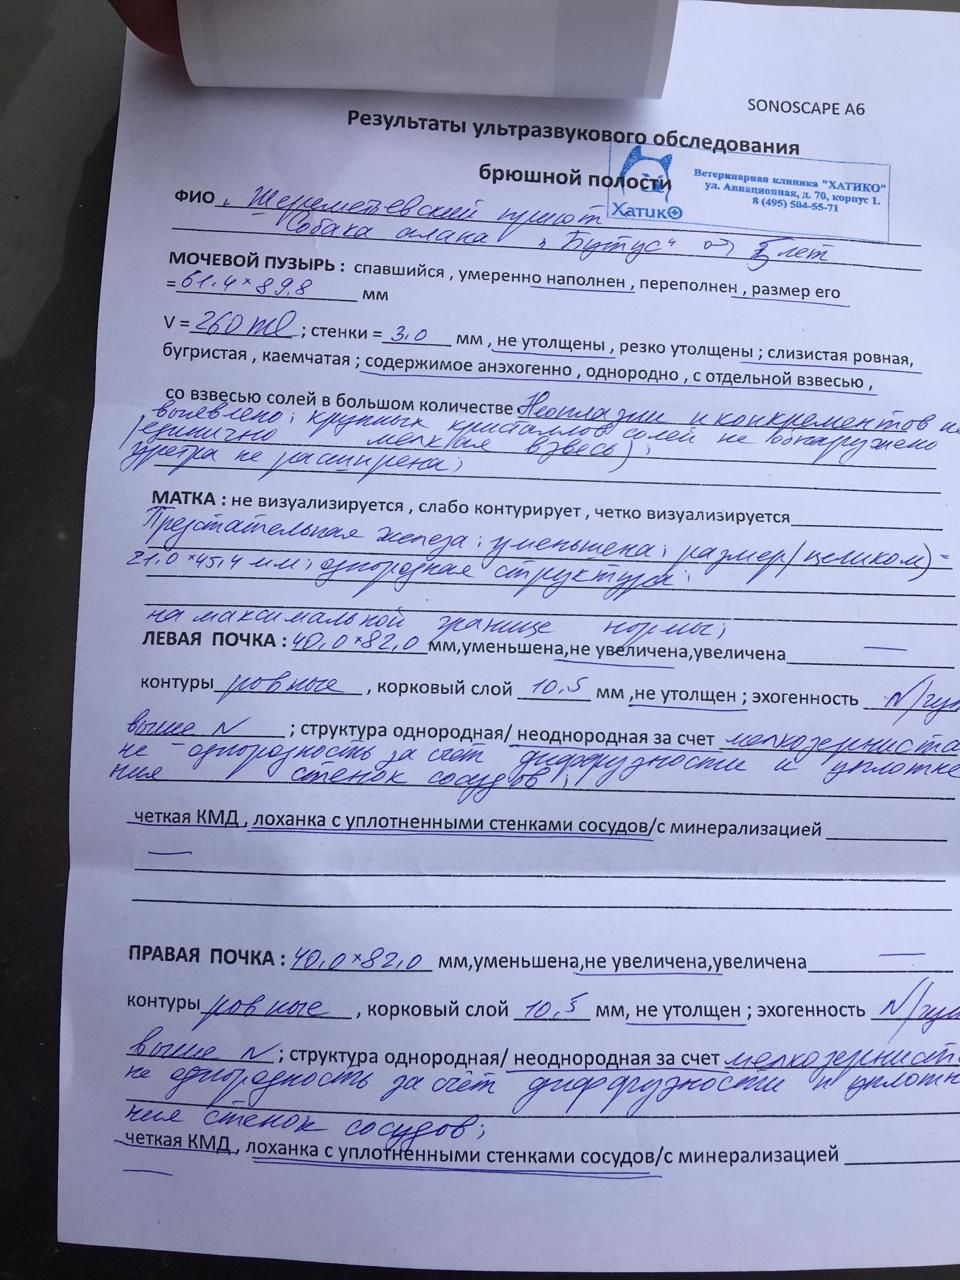 SONOSCAPE A6
Результаты ультразвукового обследования
брюшной полости
Ветеринарная клиника "ХАТИКО"
ул. Авиационная, д. 70, корпус 1.
8 (495) 504-55-71
Хатико
ФИО Шереметьевский приют
Собака "Бутус" 5 лет
МОЧЕВОЙ ПУЗЫРЬ : спавшийся , умеренно наполнен , переполнен , размер его
= 61.4 × 89.8 мм
V = 260 ml ; стенки = 3.0 мм , не утолщены , резко утолщены ; слизистая ровная,
бугристая , каемчатая ; содержимое анэхогенно , однородно , с отдельной взвесью ,
со взвесью солей в большом количестве Неоплазии и конкрементов не
выявлено; крупных кристаллов солей не обнаружено
/единично мелкая взвесь);
уретра не расширена;
МАТКА : не визуализируется , слабо контурирует , четко визуализируется
Предстательная железа: уменьшена; размер/целиком) =
21,0 × 45,4 мм; однородная структура;
на максимальной границе нормы;
ЛЕВАЯ ПОЧКА : 40,0 × 82,0 мм,уменьшена,не увеличена,увеличена —
контуры ровные , корковый слой 10,5 мм ,не утолщен ; эхогенность N/
выше N ; структура однородная/ неоднородная за счет мелкозерниста
не - однородность за счёт диффузности и уплотне
ния стенок сосудов ;
четкая КМД , лоханка с уплотненными стенками сосудов/с минерализацией
—
ПРАВАЯ ПОЧКА : 40,0 × 82,0 мм,уменьшена,не увеличена,увеличена —
контуры ровные , корковый слой 10,5 мм, не утолщен ; эхогенность N/
выше N ; структура однородная/ неоднородная за счет мелкозернист
не однородность за счёт диффузности и уплотн
ния стенок сосудов;
четкая КМД , лоханка с уплотненными стенками сосудов/с минерализацией
—